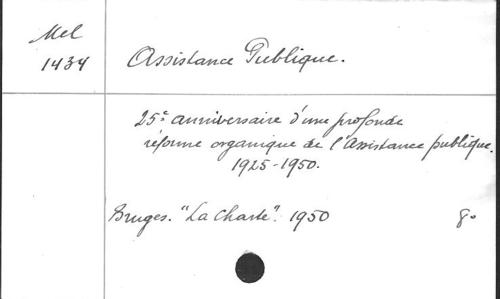 Mel
1434
Assistance Publique.
25e anniversaire d'une profonde
réforme organique de l'Assistance publique.
1925-1950.
Bruges. "La Charte". 1950
8°